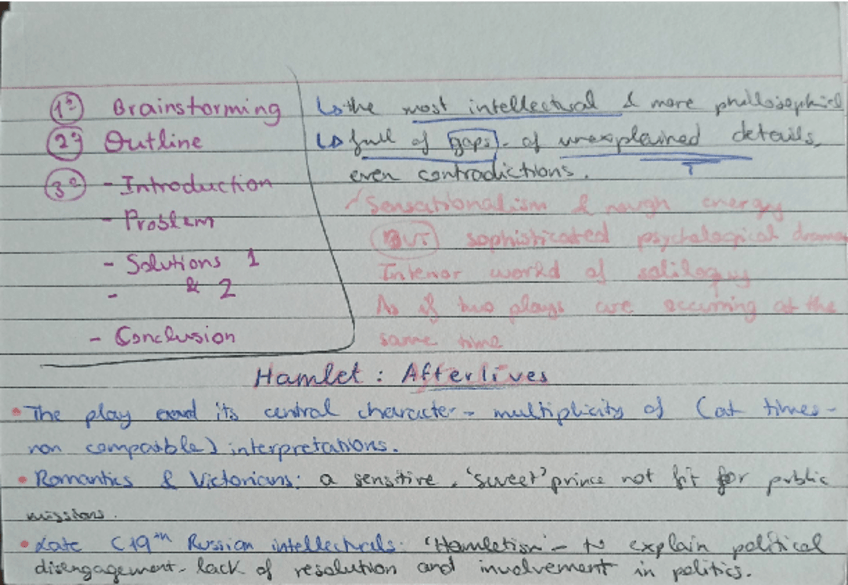 1º Brainstorming
2º Outline
3º - Introduction
- Problem
- Solutions 1
- & 2
- Conclusion
↳ the most intellectual & more phillosophical
↳ full of gaps - of unexplained details,
even contradictions.
Sensationalism & rough energy
BUT sophisticated psychological drama
Interior world of soliloquy
As if two plays are occuring at the
same time
Hamlet : Afterlives
• The play and its central character - multiplicity of (at times -
non compatible) interpretations.
• Romantics & Victorians: a sensitive, 'sweet' prince not fit for public
missions.
• Late C19th Russian intellectuals: 'Hamletism' - to explain political
disengagement - lack of resolution and involvement in politics.